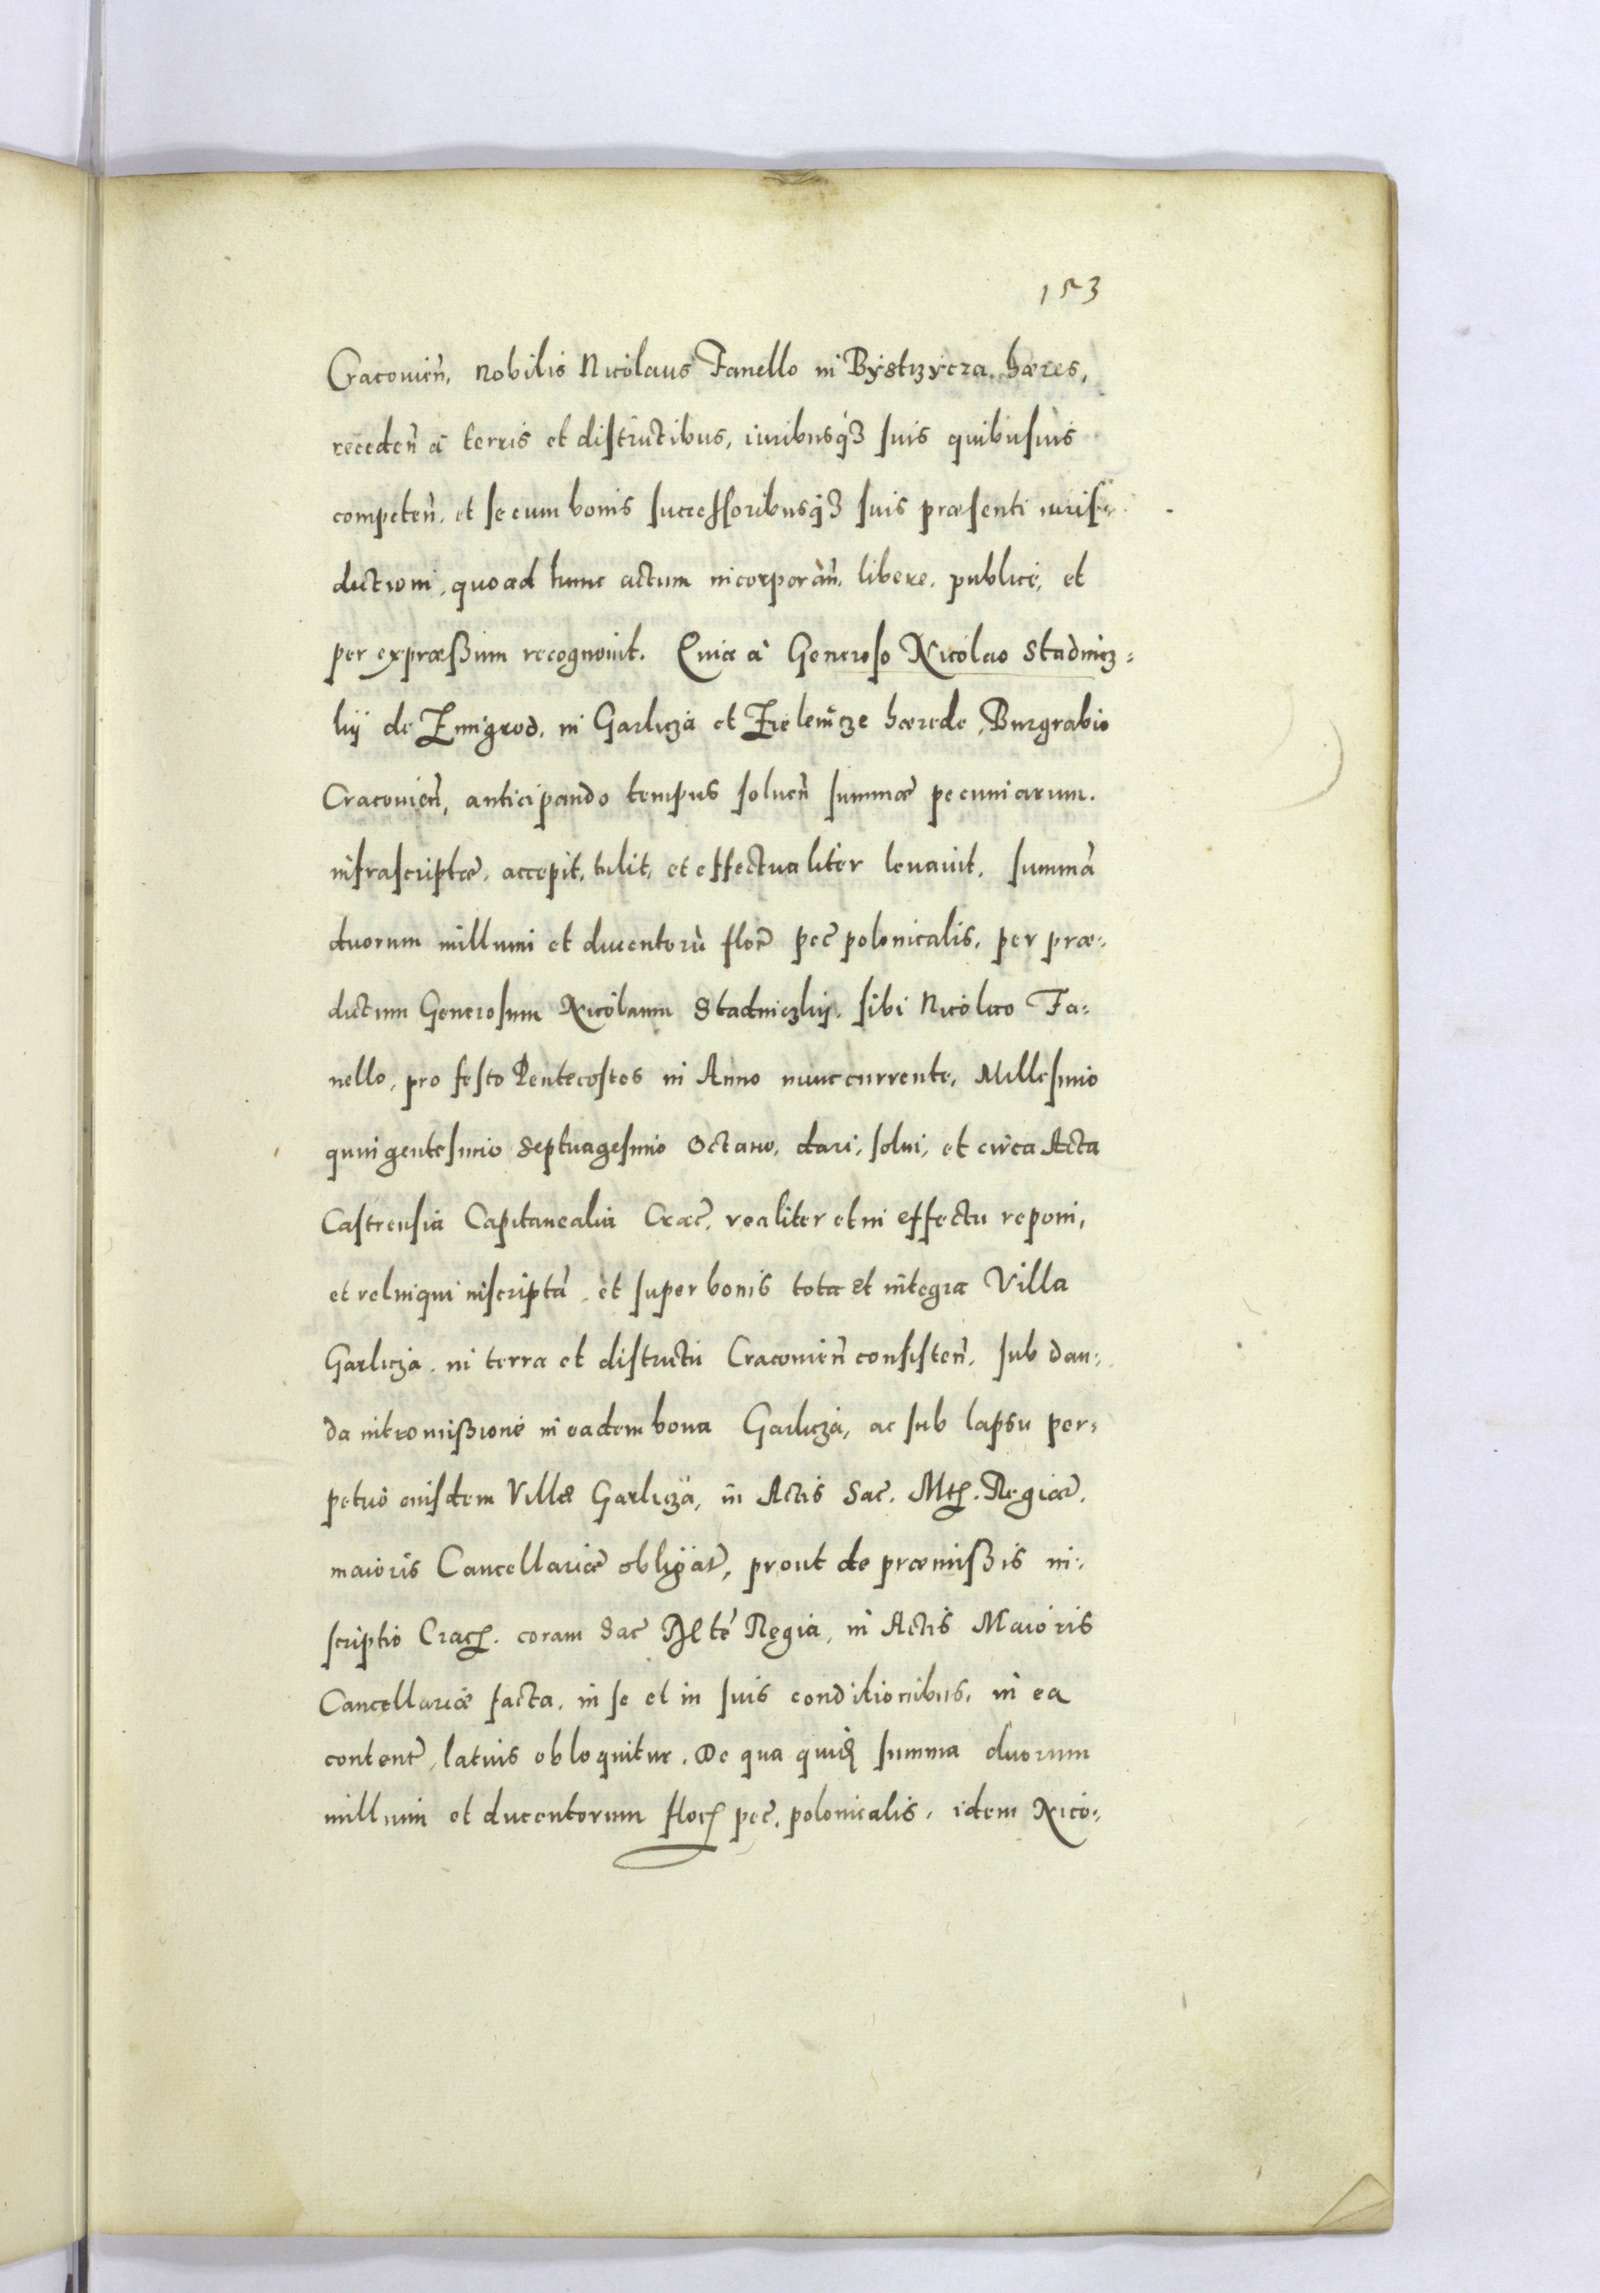 153
Cracovień, nobilis Nicolaus Fanello in Bystrzycza hæres,
receden̄ à terris et districtibus, iuribusq3 suis quibusuis
competen̄, et se cum bonis successoribusq3 suis præsenti iuris-
dictioni, quoad hunc actum incorporan̄, libere, publicè, et
per expræßum recognouit. Quia à Generoso Nicolao Stadnicz-
kij de Zmigrod, in Garlicza et Zielenicze hærede, Burgrabio
Cracovień, anticipando tempus soluen̄ summæ pecuniarum.
infrascriptæ, accepit, tulit, et effectualiter leuauit, summā
duorum millium et ducentorū flor̄ pec̄ polonicalis, per præ-
dictum Generosum Nicolaum Stadniczkij, sibi Nicolao Fa-
nello, pro festo Pentecostes in Anno nunc currente, Millesimo
quingentesimo Septuagesimo Octauo, dari, solui, et circa Acta
Castrensia Capitanealia Crac̄, realiter et in effectu reponi,
et relinqui inscriptā, et super bonis tota et integra Villa
Garlicza, in terra et districtu Cracovień consisten̄, sub dan-
da intromißione in eadem bona Garlicza, ac sub lapsu per-
petuo eiusdem Villæ Garlicza, in Actis Sac̄. Mtis. Regiæ.
maioris Cancellariæ obligat̄, prout de præmißis in-
scriptio Crac. coram Sac̄ Mte Regia, in Actis Maioris
Cancellariæ facta, in se et in suis conditionibus, in ea
content̄, latius obloquitur. De qua quidē summa duorum
millium et ducentorum flor pec̄. polonicalis, idem Nico-